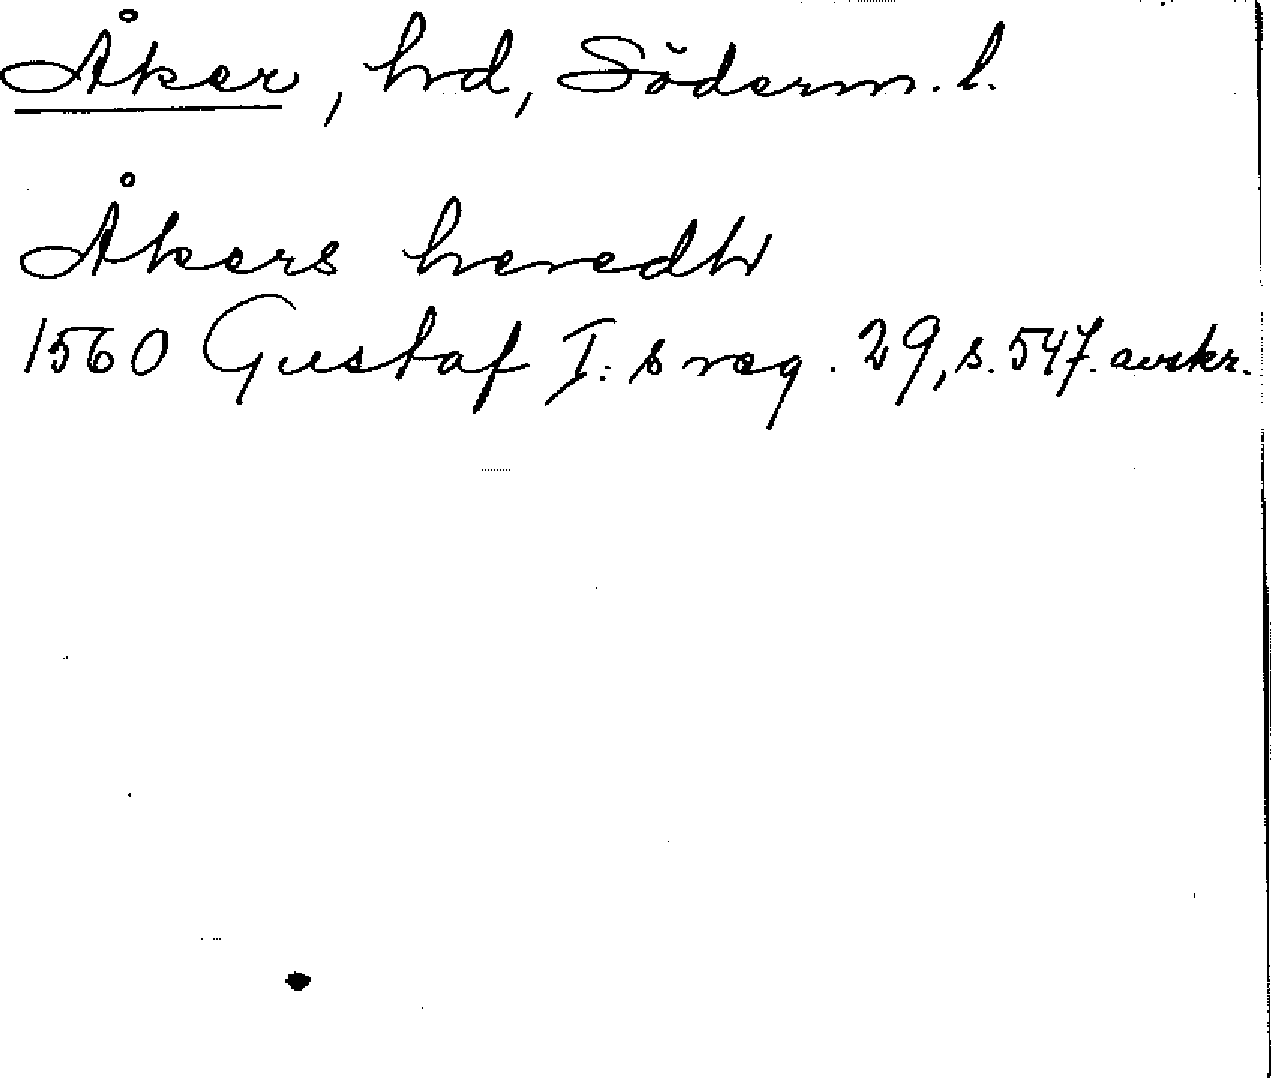 Åker, hrd, Söderm. l.
Åkers heredh
1560 Gustaf I: s reg. 29, s. 547. avskr.